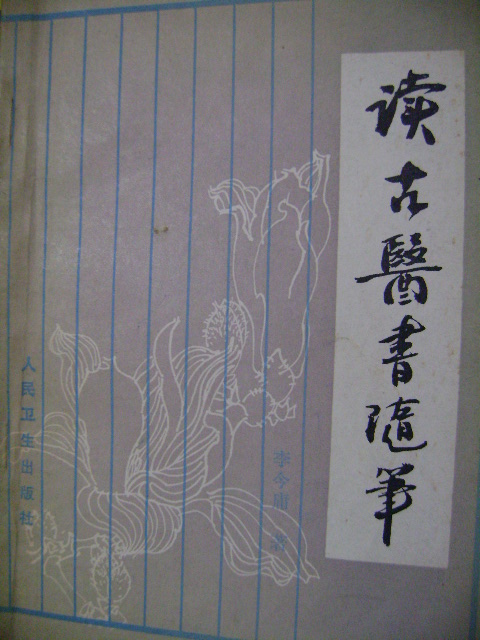 读古醫書隨筆
李今庸 著
人民卫生出版社